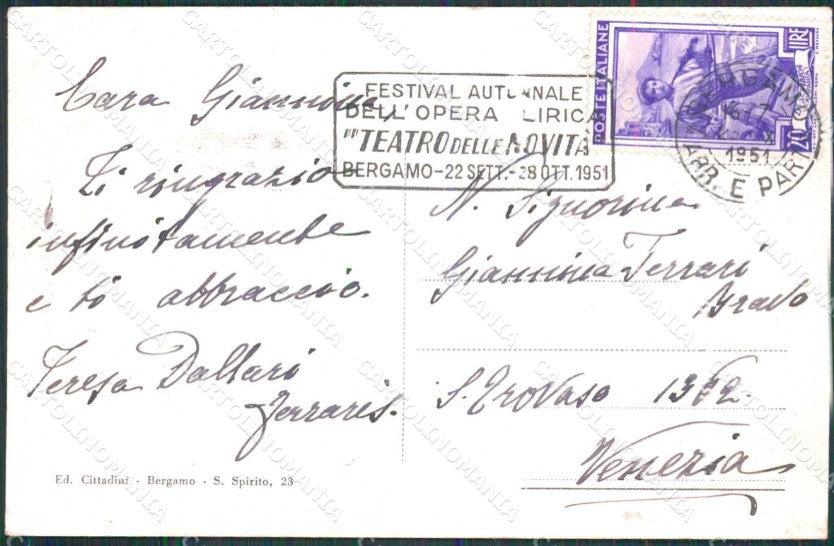 Cara Giannina
Ti ringrazio
infinitamente
e ti abbraccio.
Teresa Dallari
Ferraris.
Ed. Cittadini - Bergamo - S. Spirito, 23
FESTIVAL AUTUNNALE
DELL'OPERA LIRICA
"TEATRO DELLE NOVITÀ
BERGAMO-22 SETT.-28 OTT. 1951
POSTE ITALIANE
LIRE
20
BERGAMO
1951
ARR. E PART
N. Signorina
Giannina Ferrari
Bravo
S. Trovaso 1372
Venezia
CARTOLINOMANIA